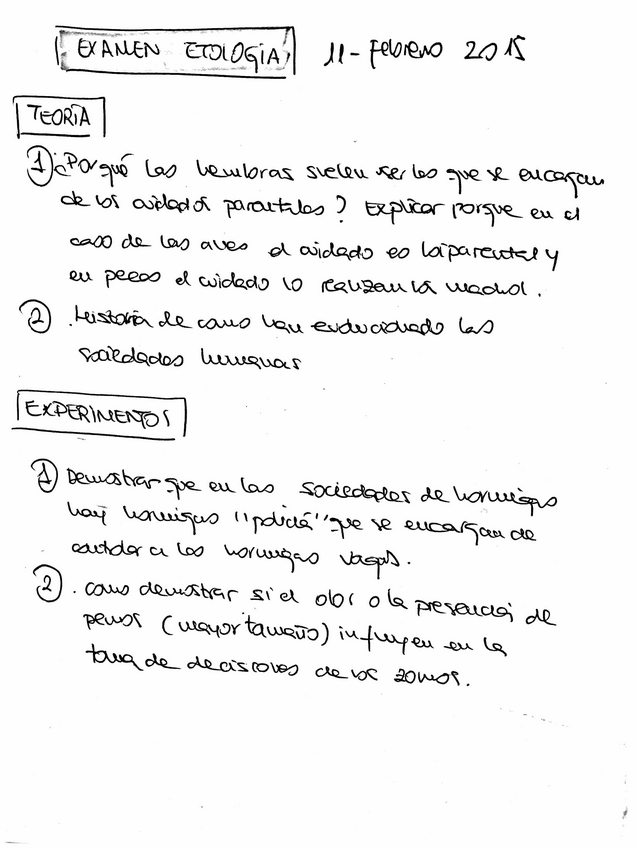 EXAMEN ETOLOGIA 11-Febrero 2015
TEORÍA
1 ¿Por qué las hembras suelen ser las que se encargan
de los cuidados parentales? Explicar porque en el
caso de las aves el cuidado es biparental y
en peces el cuidado lo realizan los machos.
2 . Historia de como han evolucionado las
sociedades humanas
EXPERIMENTOS
1 Demostrar que en las sociedades de hormigas
hay hormigas "policía" que se encargan de
a las hormigas vagas.
2 . como demostrar si el olor o la presencia de
perros (mayor tamaño) influyen en la
toma de decisiones de los zorros.